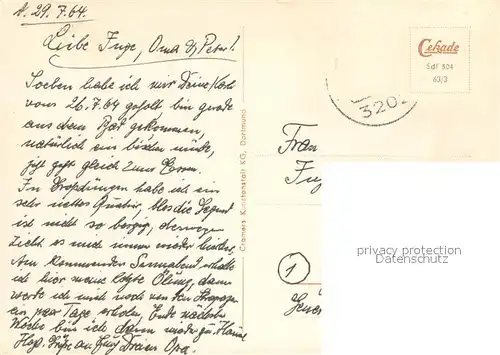 d. 29.7.64.
Liebe Inge, Oma & Peter!
Soeben habe ich mir Deine Karte
vom 26.7.64 geholt bin gerade
aus dem Bad gekommen,
natürlich ein bischen müde,
jetzt geht gleich zum Essen.
habe ich ein
sehr nettes Quartier, blos die Gegend
ist nicht so bergig, deswegen
zieht es mich immer wieder
Am kommenden Sonnabend erhalte
ich hier meine letzte Ölung, dann
werde ich mich noch von den Strapazen
ein paar Tage erholen, Ende nächster
Woche bin ich dann wieder zu Hause
Grüße an Euch Deinen Opa.
Cramers Kunstanstalt KG, Dortmund
Cekade
SdF 504
63/3
320
Frau
1
privacy protection
Datenschutz